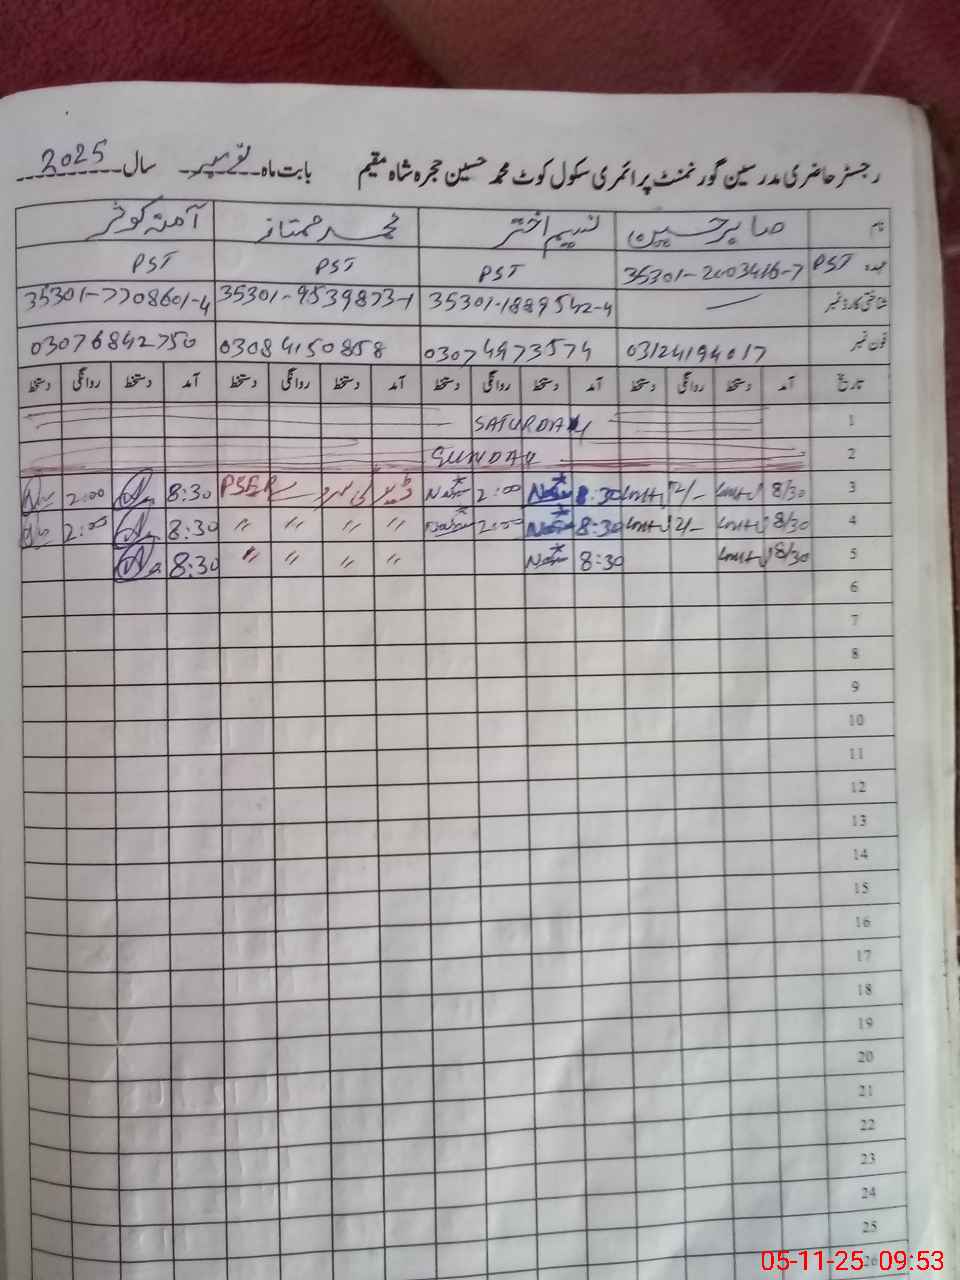 رجسٹر حاضری مدرسین گورنمنٹ پرائمری سکول کوٹ محمد حسین حجرہ شاہ مقیم بابت ماہ نومبر سال 2025
نام صابر حسین نسیم اختر محمد ممتاز آمنہ کوثر
عہدہ PST 35301-2003416-7 PST PST PST
شناختی کارڈ نمبر — 35301-1889542-4 35301-9539873-1 35301-7708601-4
فون نمبر 03124194017 03074973574 03084150858 03076842750
تاریخ آمد دستخط روانگی دستخط آمد دستخط روانگی دستخط آمد دستخط روانگی دستخط آمد دستخط روانگی دستخط
1 SATURDAY
2 SUNDAY
3 8/30 2/- 8:30 2:00 PSER 8:30 2:00
4 8/30 2/- 8:30 2:00 " " " " 8:30 2:00
5 8/30 8:30 " " " " 8:30
6
7
8
9
10
11
12
13
14
15
16
17
18
19
20
21
22
23
24
25
26
05-11-25 09:53